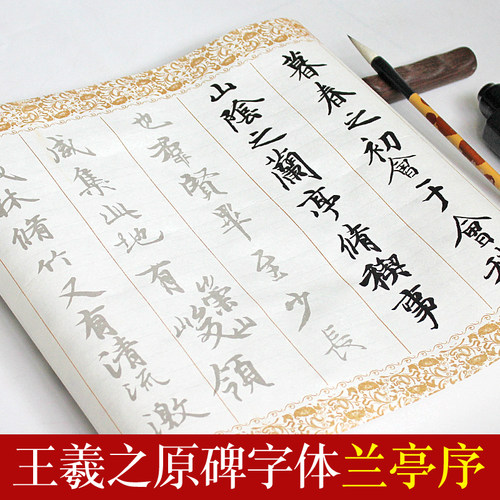 暮春之初會于會
山陰之蘭亭脩稧事
也羣賢畢至少長
咸集此地有崇山峻領
林脩竹又有清流激
王羲之原碑字体兰亭序